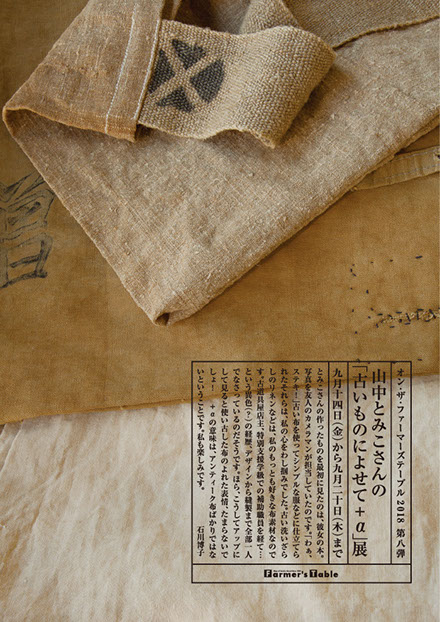 オン・ザ・ファーマーズテーブル 2018 第八弾
山中とみこさんの
「古いものによせて+α」展
九月十四日(金)から九月二十日(木)まで
とみこさんの作ったものを最初に見たのは、彼女の本、
写真を友人のカメラマンが担当していたのです。「わぁ、
ステキ!」古い布を使ってシンプルな服などに仕立てら
れたそれらは、私の心をわし掴みでした。古い洗いざら
しのリネンなどは、私のもっとも好きな布素材なので
す。古道具屋店主、特別支援学級での補助職員を経て…
という異色(?)の経歴。デザインから縫製まで全部一人
でなさっているのだそうです。ほら、こうしてアップに
して見ると使い古した布のよれた表情、たまらないで
しょ! +αの意味は、アンティーク布ばかりではな
いということです。私も楽しみです。
石川博子
Farmer's Table